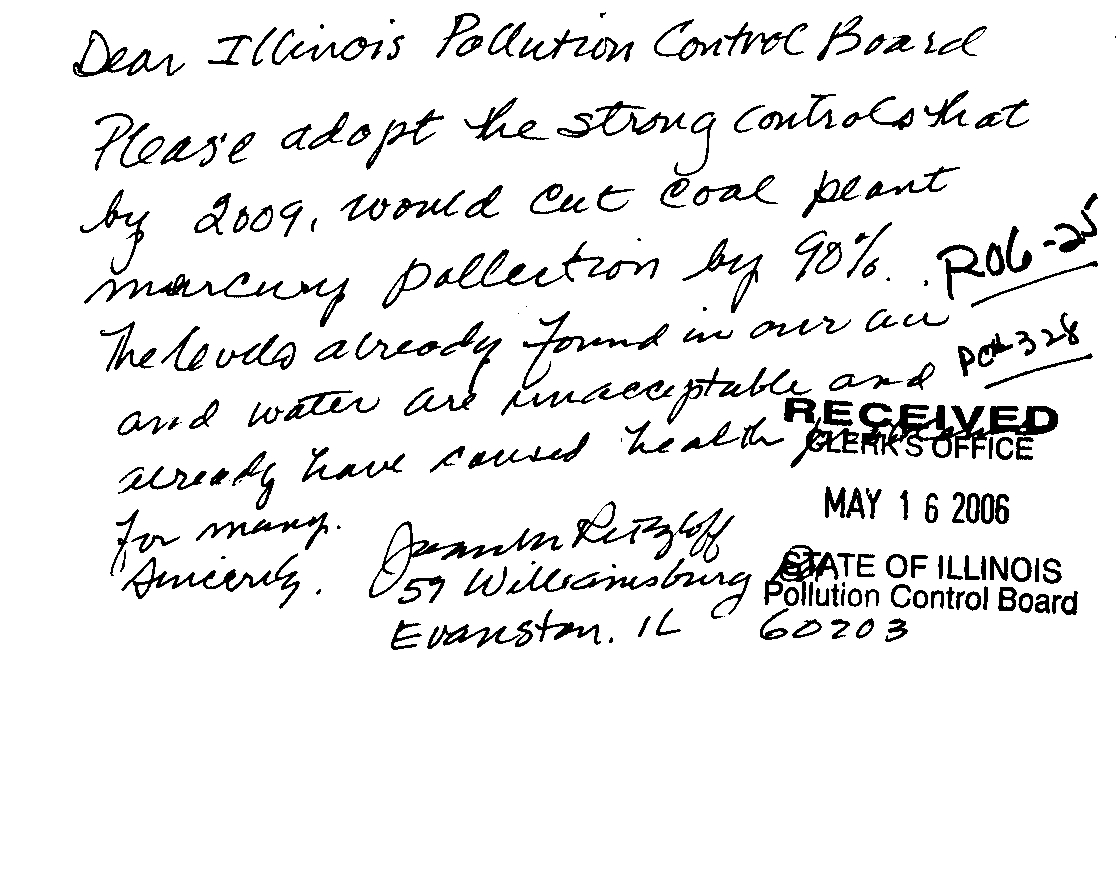 Dear Illinois Pollution Control Board
Please adopt the strong controls that
by 2009, would cut coal plant
mercury pollution by 90%.
R06-25
The levels already found in our air
PC#328
and water are unacceptable and
already have caused health
for many.
Sincerely,
RECEIVED
CLERK'S OFFICE
MAY 16 2006
STATE OF ILLINOIS
Pollution Control Board
Retzloff
59 Williamsburg
Evanston, IL 60203